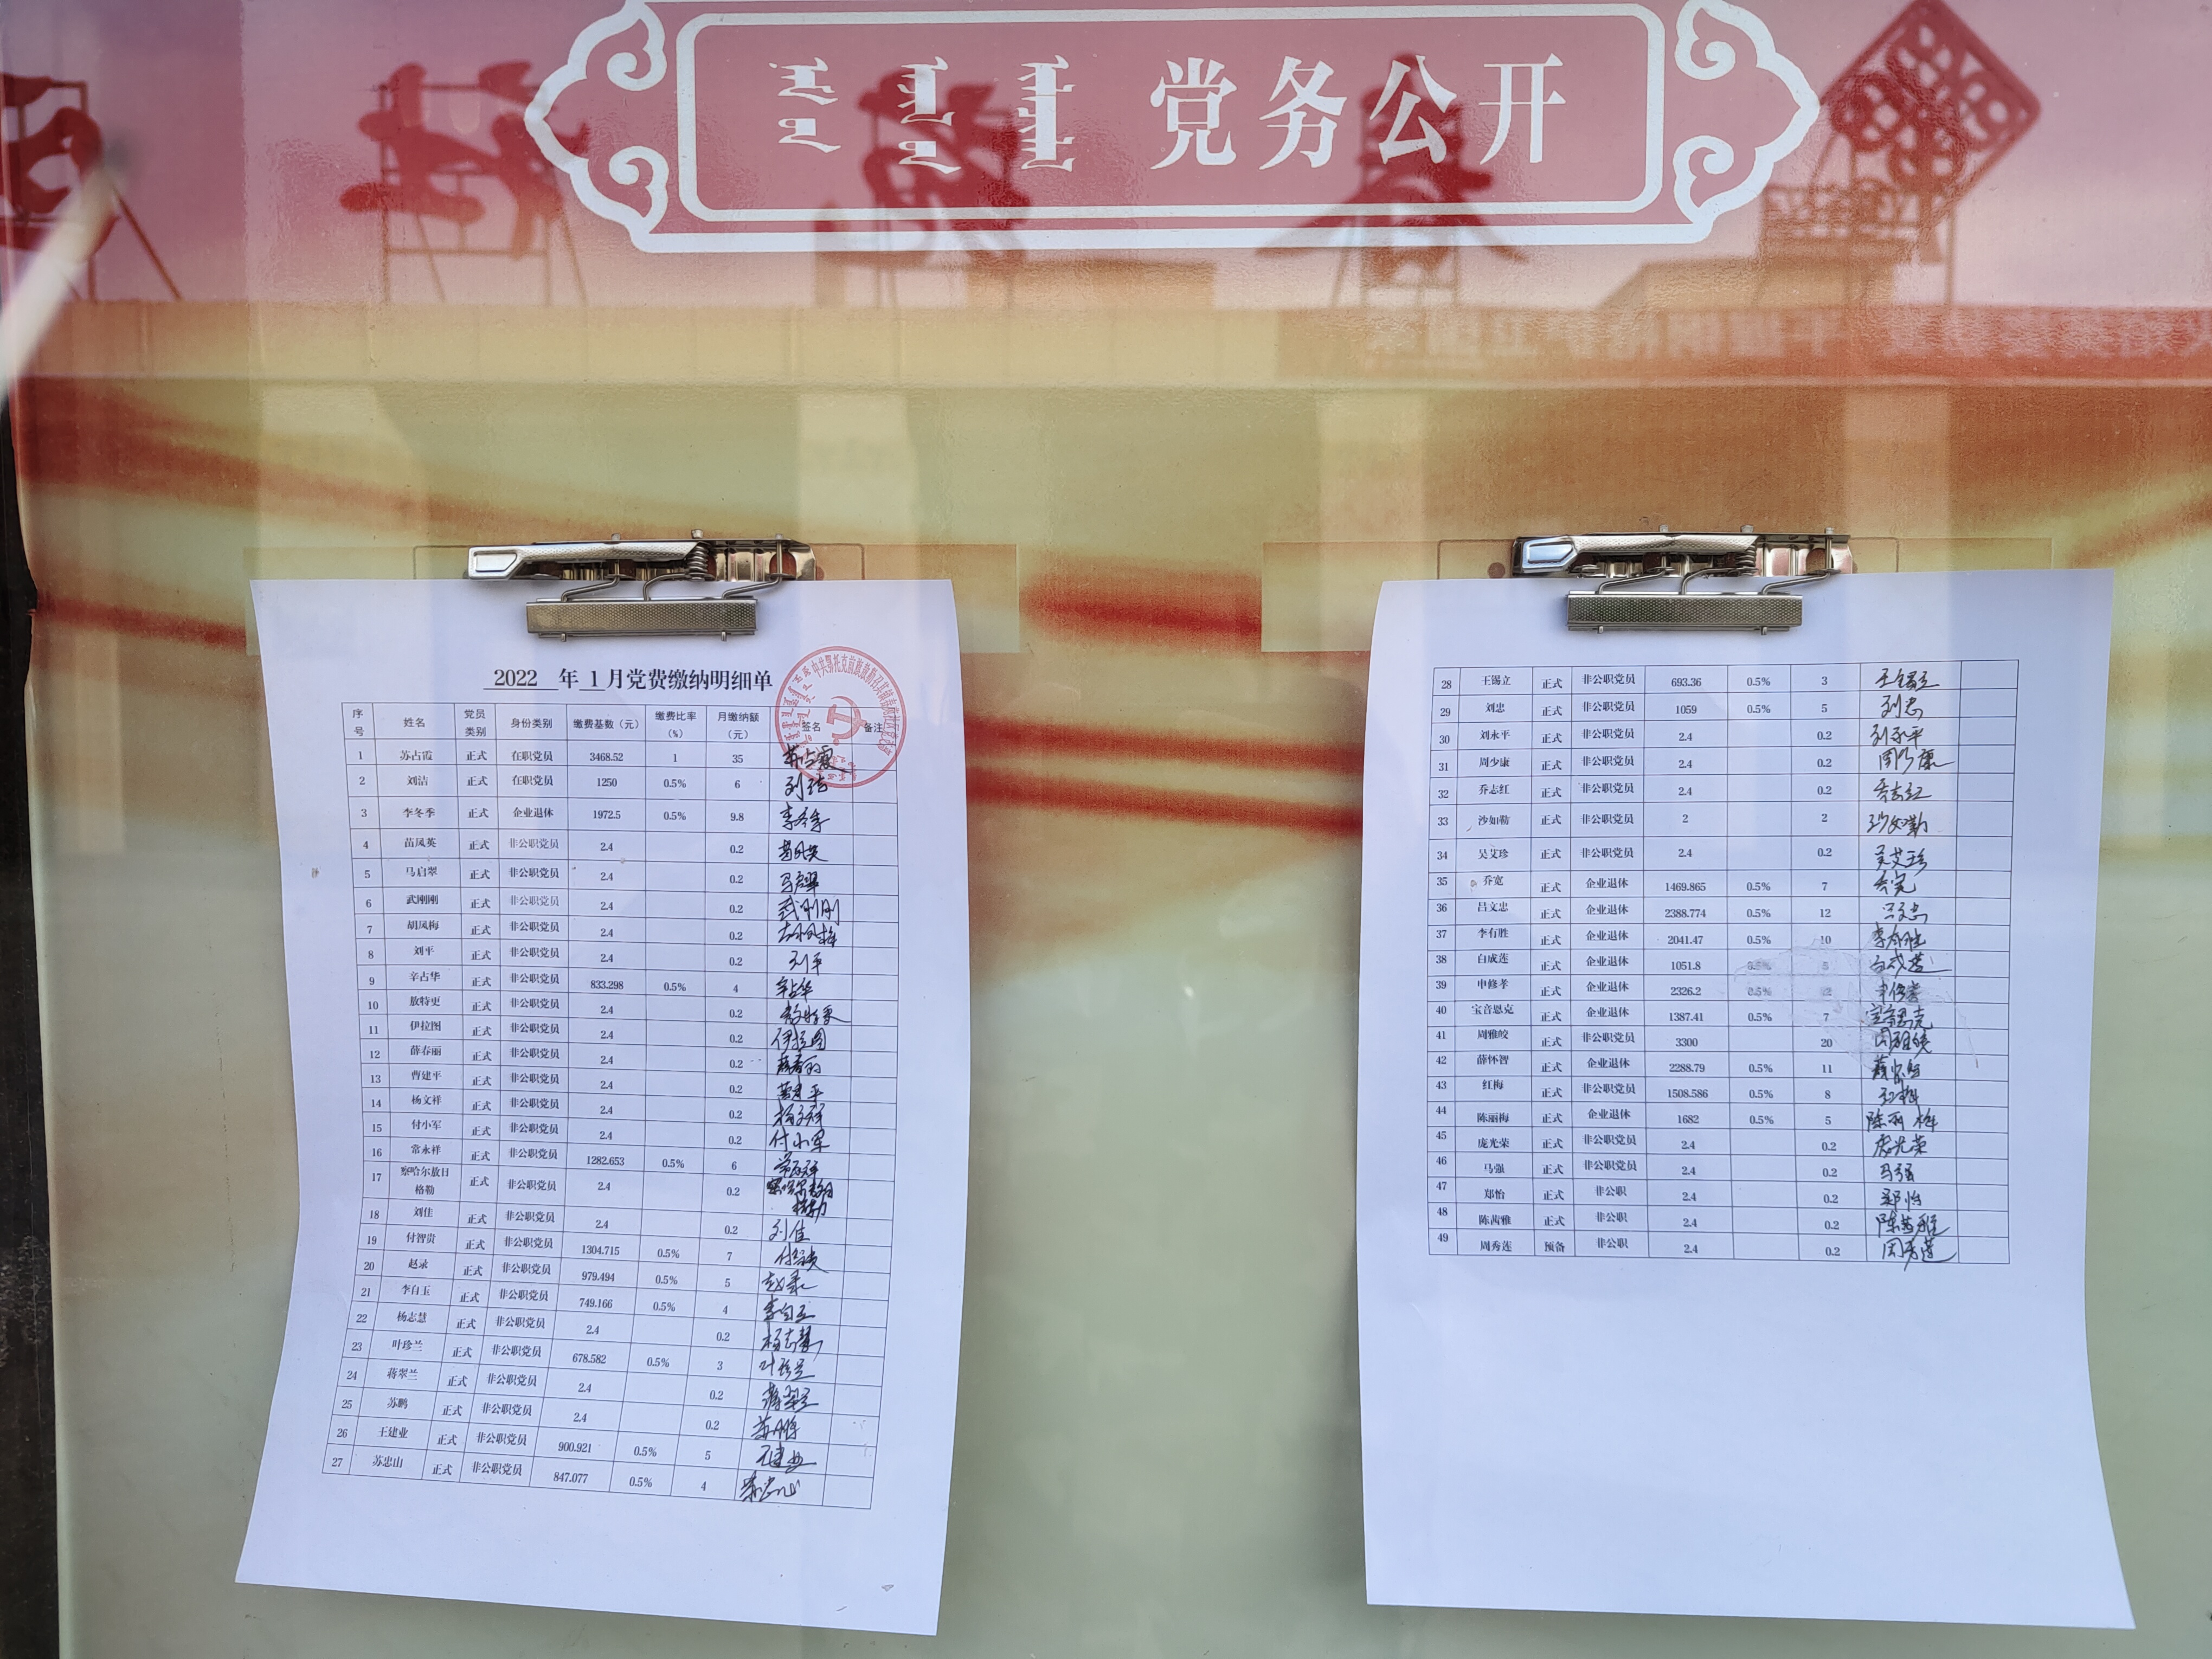 党务公开
2022 年 1 月党费缴纳明细单
序号 姓名 党员类别 身份类别 缴费基数（元） 缴费比率（%） 月缴纳额（元） 签名 备注
1 苏占霞 正式 在职党员 3468.52 1 35 苏占霞
2 刘洁 正式 在职党员 1250 0.5% 6 刘洁
3 李冬季 正式 企业退休 1972.5 0.5% 9.8 李冬季
4 苗凤英 正式 非公职党员 2.4 0.2 苗凤英
5 马启翠 正式 非公职党员 2.4 0.2 马启翠
6 武刚刚 正式 非公职党员 2.4 0.2 武刚刚
7 胡凤梅 正式 非公职党员 2.4 0.2 胡凤梅
8 刘平 正式 非公职党员 2.4 0.2 刘平
9 辛占华 正式 非公职党员 833.298 0.5% 4 辛占华
10 敖特更 正式 非公职党员 2.4 0.2 敖特更
11 伊拉图 正式 非公职党员 2.4 0.2 伊拉图
12 薛春丽 正式 非公职党员 2.4 0.2 薛春丽
13 曹建平 正式 非公职党员 2.4 0.2 曹建平
14 杨文祥 正式 非公职党员 2.4 0.2 杨文祥
15 付小军 正式 非公职党员 2.4 0.2 付小军
16 常永祥 正式 非公职党员 1282.653 0.5% 6 常永祥
17 察哈尔敖日格勒 正式 非公职党员 2.4 0.2 察哈尔敖日格勒
18 刘佳 正式 非公职党员 2.4 0.2 刘佳
19 付智贵 正式 非公职党员 1304.715 0.5% 7 付智贵
20 赵录 正式 非公职党员 979.494 0.5% 5 赵录
21 李自玉 正式 非公职党员 749.166 0.5% 4 李自玉
22 杨志慧 正式 非公职党员 2.4 0.2 杨志慧
23 叶珍兰 正式 非公职党员 678.582 0.5% 3 叶珍兰
24 蒋翠兰 正式 非公职党员 2.4 0.2 蒋翠兰
25 苏鹏 正式 非公职党员 2.4 0.2 苏鹏
26 王建业 正式 非公职党员 900.921 0.5% 5 王建业
27 苏忠山 正式 非公职党员 847.077 0.5% 4 苏忠山
28 王锡立 正式 非公职党员 693.36 0.5% 3 王锡立
29 刘忠 正式 非公职党员 1059 0.5% 5 刘忠
30 刘永平 正式 非公职党员 2.4 0.2 刘永平
31 周少康 正式 非公职党员 2.4 0.2 周少康
32 乔志红 正式 非公职党员 2.4 0.2 乔志红
33 沙如勒 正式 非公职党员 2 2 沙如勒
34 吴艾珍 正式 非公职党员 2.4 0.2 吴艾珍
35 乔宽 正式 企业退休 1469.865 0.5% 7 乔宽
36 吕文忠 正式 企业退休 2388.774 0.5% 12 吕文忠
37 李有胜 正式 企业退休 2041.47 0.5% 10 李有胜
38 白成莲 正式 企业退休 1051.8 0.5% 5 白成莲
39 申修孝 正式 企业退休 2326.2 0.5% 12 申修孝
40 宝音恩克 正式 企业退休 1387.41 0.5% 7 宝音恩克
41 周雅皎 正式 非公职党员 3300 20 周雅皎
42 薛怀智 正式 企业退休 2288.79 0.5% 11 薛怀智
43 红梅 正式 非公职党员 1508.586 0.5% 8 红梅
44 陈丽梅 正式 企业退休 1682 0.5% 5 陈丽梅
45 庞光荣 正式 非公职党员 2.4 0.2 庞光荣
46 马强 正式 非公职党员 2.4 0.2 马强
47 郑怡 正式 非公职 2.4 0.2 郑怡
48 陈茜雅 正式 非公职 2.4 0.2 陈茜雅
49 周秀莲 预备 非公职 2.4 0.2 周秀莲